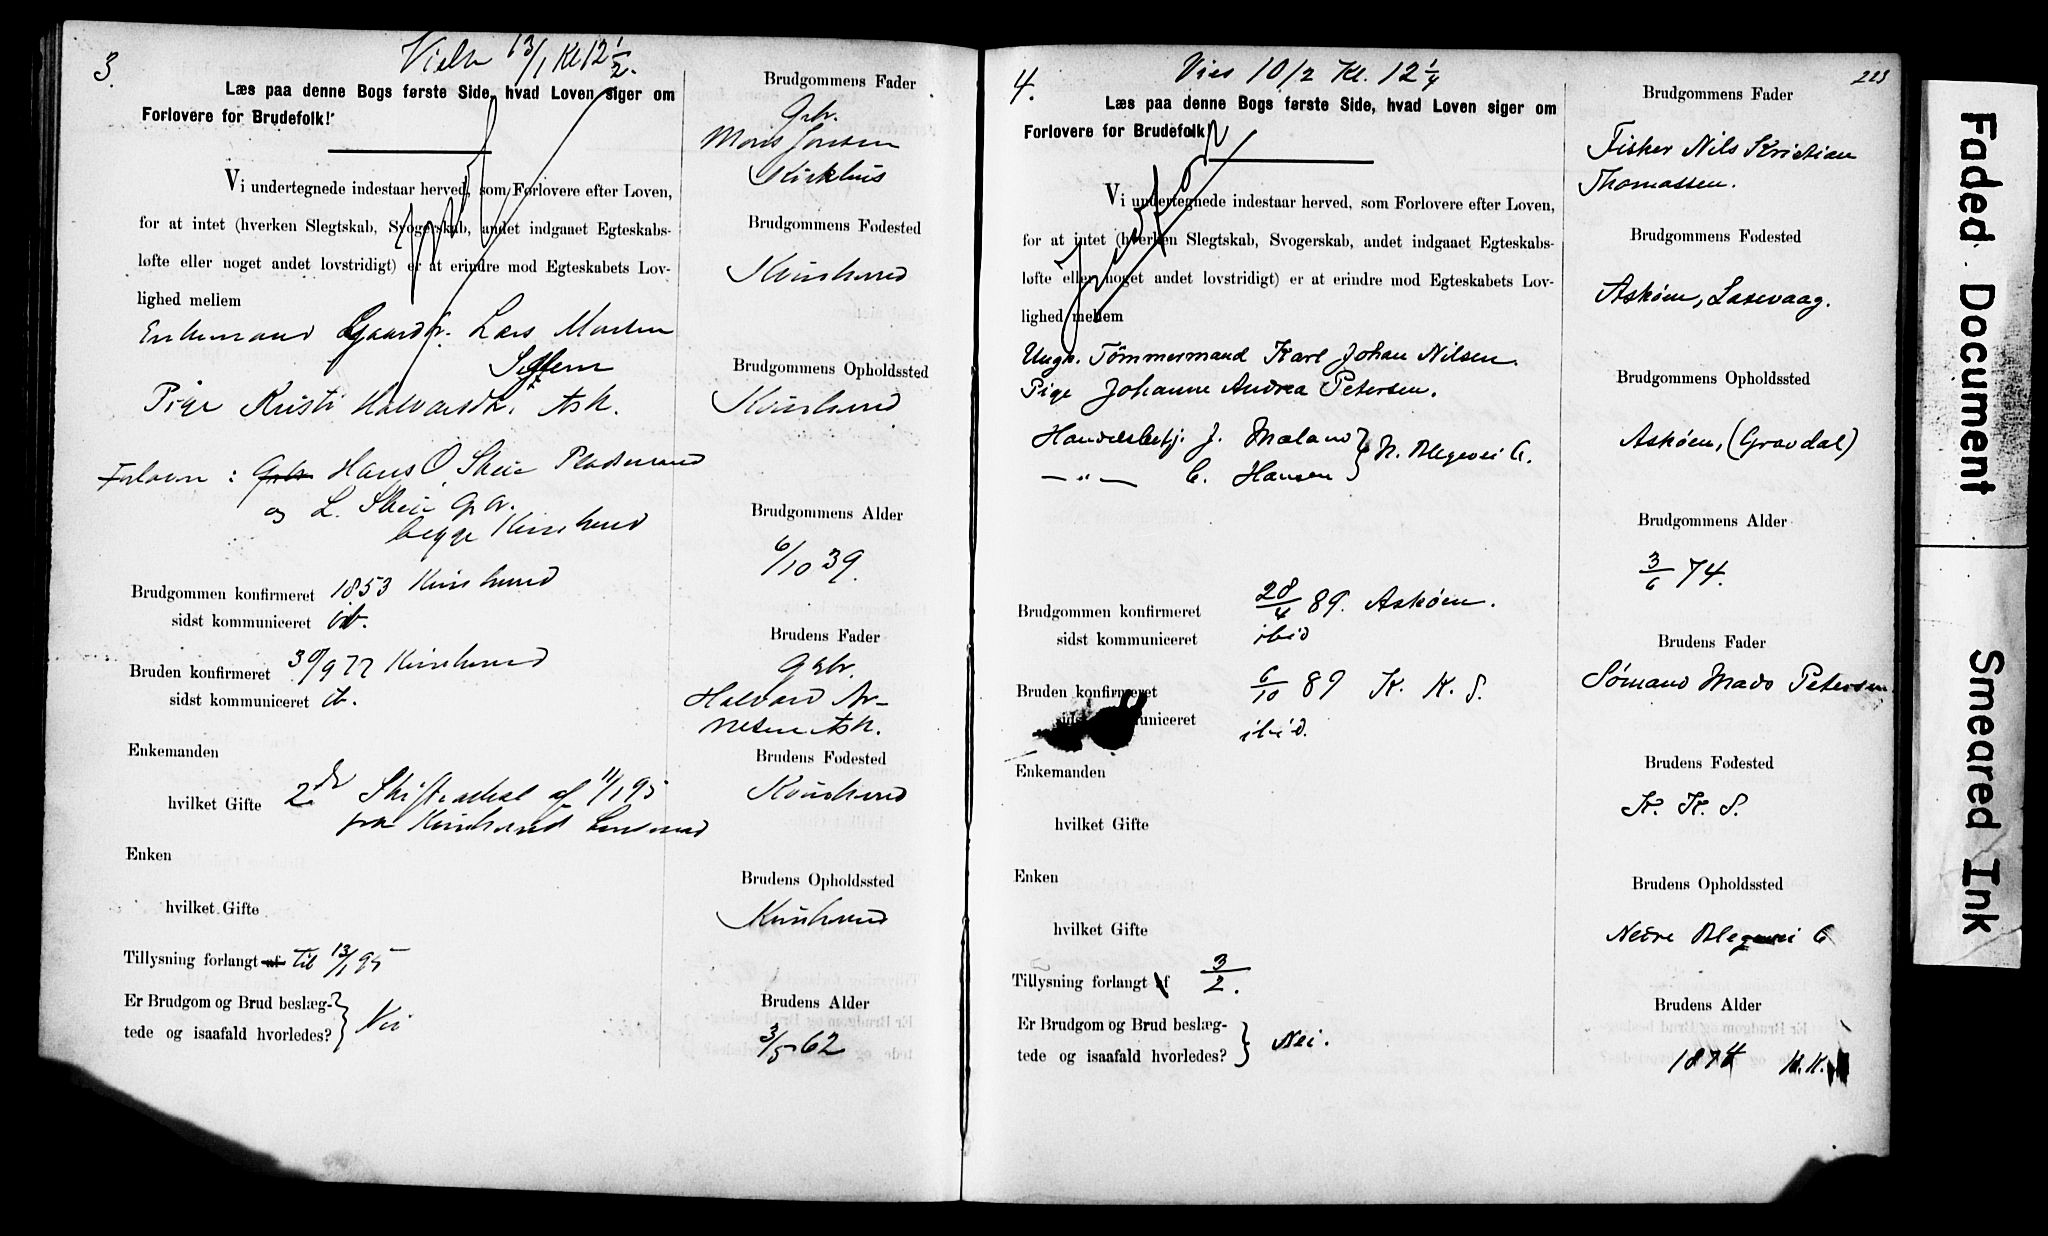 3.
Vielse 13/1 Kl 12 1/2.
Læs paa denne Bogs første Side, hvad Loven siger om
Forlovere for Brudefolk!
Vi undertegnede indestaar herved, som Forlovere efter Loven,
for at intet (hverken Slegtskab, Svogerskab, andet indgaaet Egteskabs-
løfte eller noget andet lovstridigt) er at erindre mod Egteskabets Lov-
lighed mellem
Enkemand Gaardbr. Lars Monsen
Pige Kristi Halvorsdtr. Ask.
Forlovere : Hans O. Skeie Pladsmand
og L. Skeie Gbr.
begge Kvinherred
Brudgommen konfirmeret 1853 Kvinherred
sidst kommuniceret ib.
Bruden konfirmeret 30/9 77 Kvinherred
sidst kommuniceret ib.
Enkemanden
hvilket Gifte 2det Skifteattest af 11/1 95
fra Kvinherred Lensmand
Enken
hvilket Gifte
Tillysning forlangt af til 13/1 95
Er Brudgom og Brud beslæg-
tede og isaafald hvorledes? } Nei
Brudgommens Fader
Gbr.
Mons Jonsen
Kirkhus
Brudgommens Fødested
Kvinherred
Brudgommens Opholdssted
Kvinherred
Brudgommens Alder
6/10 39.
Brudens Fader
Gbr.
Halvard Ar-
nesen Ask.
Brudens Fødested
Kvinherred
Brudens Opholdssted
Kvinherred
Brudens Alder
3/5 62
4.
Vies 10/2 Kl. 12 1/4
223
Læs paa denne Bogs første Side, hvad Loven siger om
Forlovere for Brudefolk!
Vi undertegnede indestaar herved, som Forlovere efter Loven,
for at intet (hverken Slegtskab, Svogerskab, andet indgaaet Egteskabs-
løfte eller noget andet lovstridigt) er at erindre mod Egteskabets Lov-
lighed mellem
Ungk. Tømmermand Karl Johan Nilsen.
Pige Johanne Andrea Petersen.
Handelsbetj. J. Mæland } N. Blegevei 6.
— " — C. Hansen
Brudgommen konfirmeret 28/4 89. Askøen.
sidst kommuniceret ibid
Bruden konfirmeret 6/10 89 K. K. S.
sidst kommuniceret ibid.
Enkemanden
hvilket Gifte
Enken
hvilket Gifte
Tillysning forlangt af 3/2.
Er Brudgom og Brud beslæg-
tede og isaafald hvorledes? } Nei.
Brudgommens Fader
Fisker Nils Kristian
Thomassen.
Brudgommens Fødested
Askøen, Laxevaag.
Brudgommens Opholdssted
Askøen, (Gravdal)
Brudgommens Alder
3/6 74.
Brudens Fader
Sømand Mads Petersen
Brudens Fødested
K. K. S.
Brudens Opholdssted
Nedre Blegevei 6
Brudens Alder
1874 K.K.
Faded Document
Smeared Ink